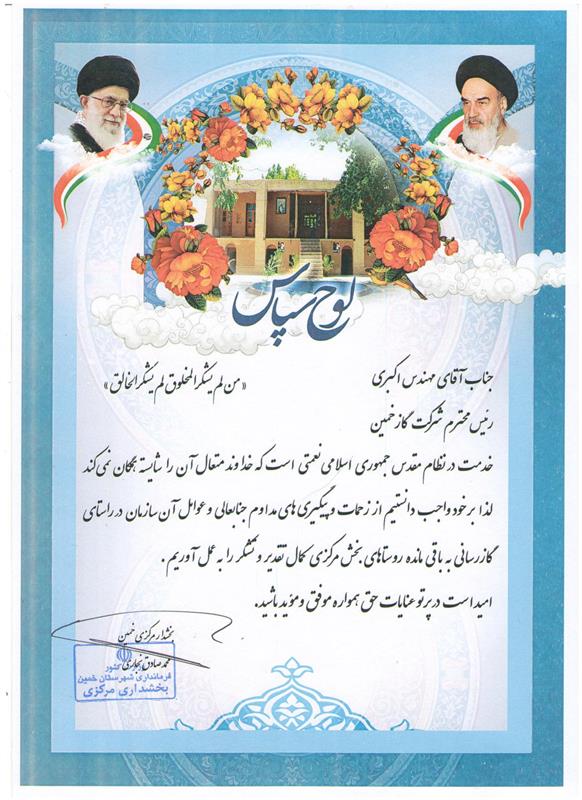 لوح سپاس
جناب آقای مهندس اکبری
« من لم یشکر المخلوق لم یشکر الخالق »
رئیس محترم شرکت گاز خمین
خدمت در نظام مقدس جمهوری اسلامی نعمتی است که خداوند متعال آن را شایسته همگان نمی کند
لذا بر خود واجب دانستیم از زحمات و پیگیری های مداوم جنابعالی و عوامل آن سازمان در راستای
گازرسانی به باقی مانده روستاهای بخش مرکزی کمال تقدیر و تشکر را به عمل آوریم .
امید است در پرتو عنایات حق همواره موفق و مؤید باشید.
بخشدار مرکزی خمین
محمد صادق
کشور
فرمانداری شهرستان خمین
بخشداری مرکزی